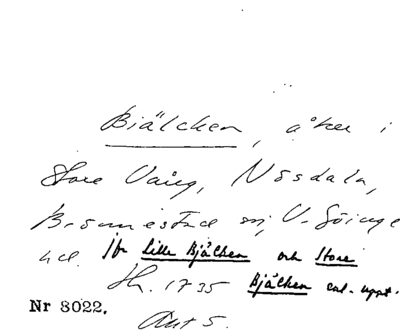 Biälcken, åker i
Store Vång, Nösdala,
Brönnestad sn, V. Göinge
hd. Jfr Lille Bjälken och Store
Sk. 1735 Bjälken enl. uppt.
Nr 8022. Akt 5.